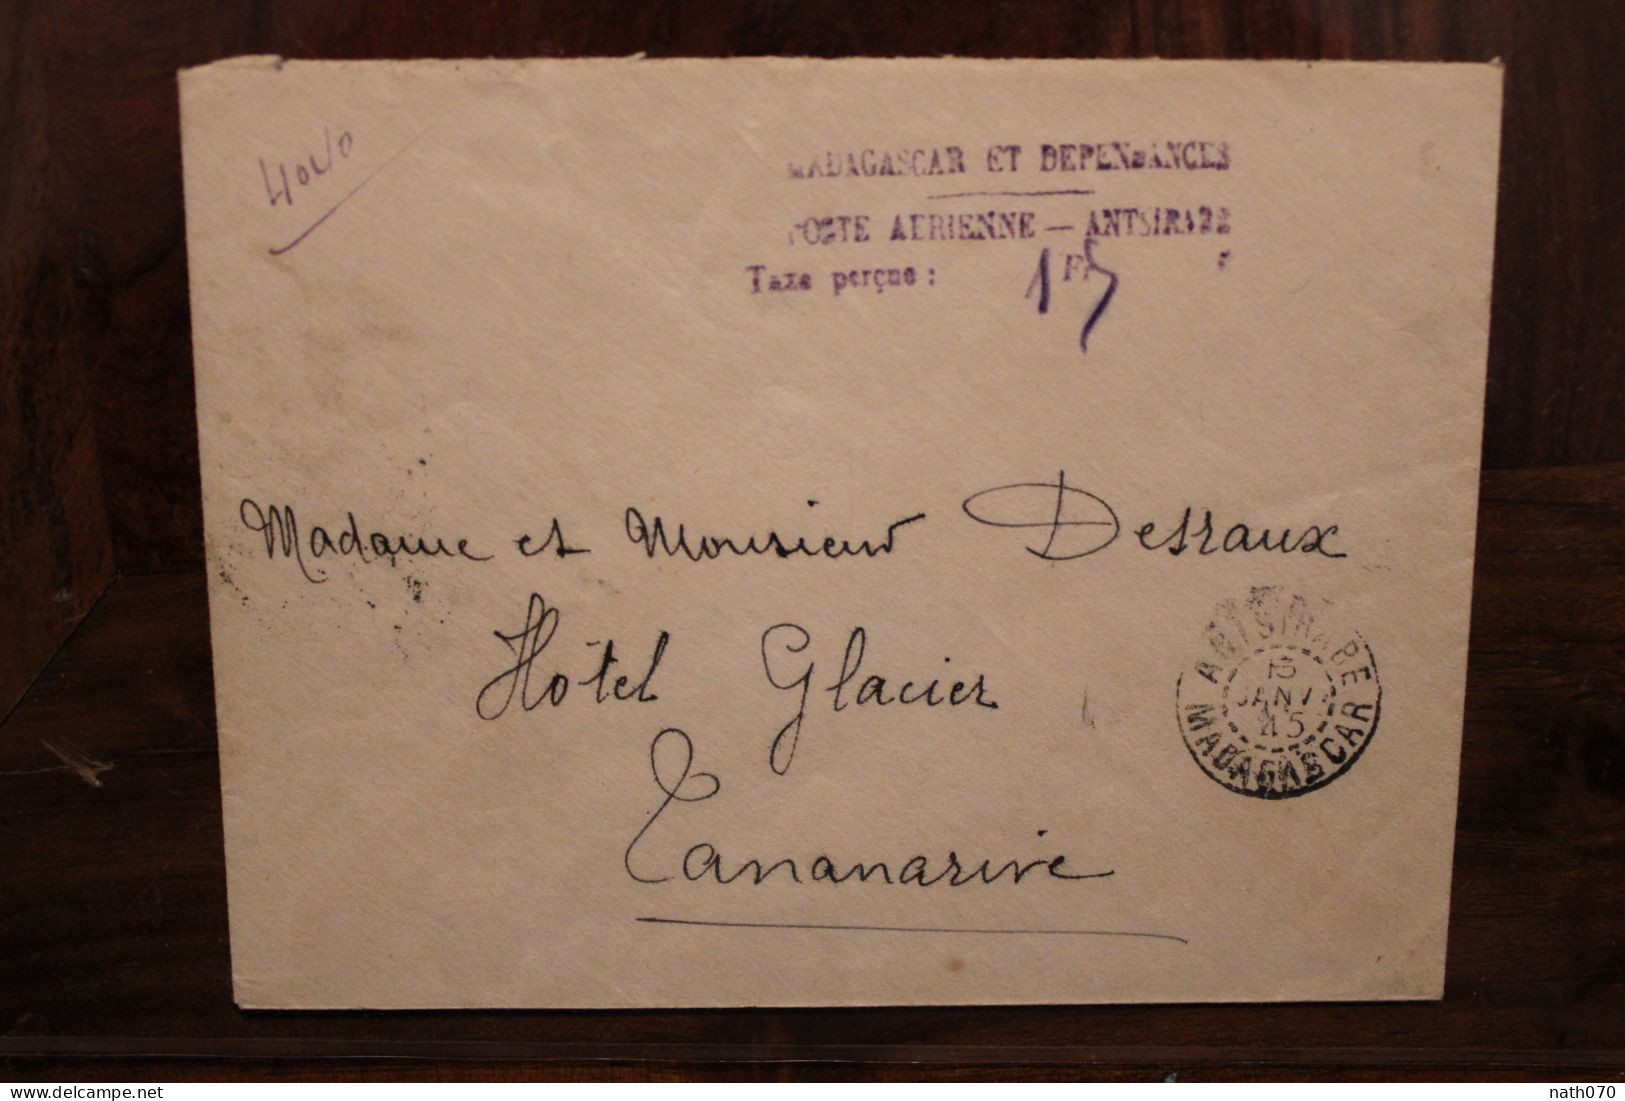 MADAGASCAR ET DEPENDANCES
POSTE AERIENNE — ANTSIRABE
Taxe perçue : 1 Fr 5
Madame et Monsieur Desraux
Hôtel Glacier
Tananarive
ANTSIRABE
15
JANV
45
MADAGASCAR
delcampe.net
nath070